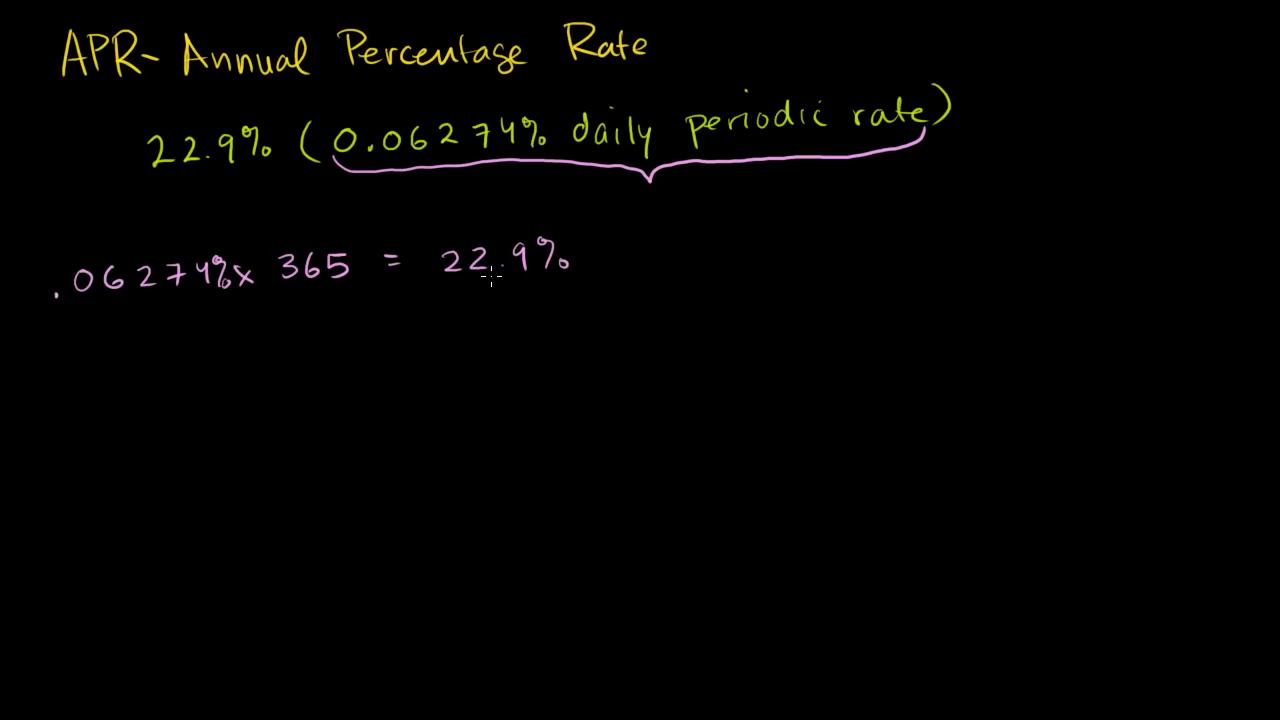 APR- Annual Percentage Rate
22.9% (0.06274% daily periodic rate)
.06274% x 365 = 22.9%